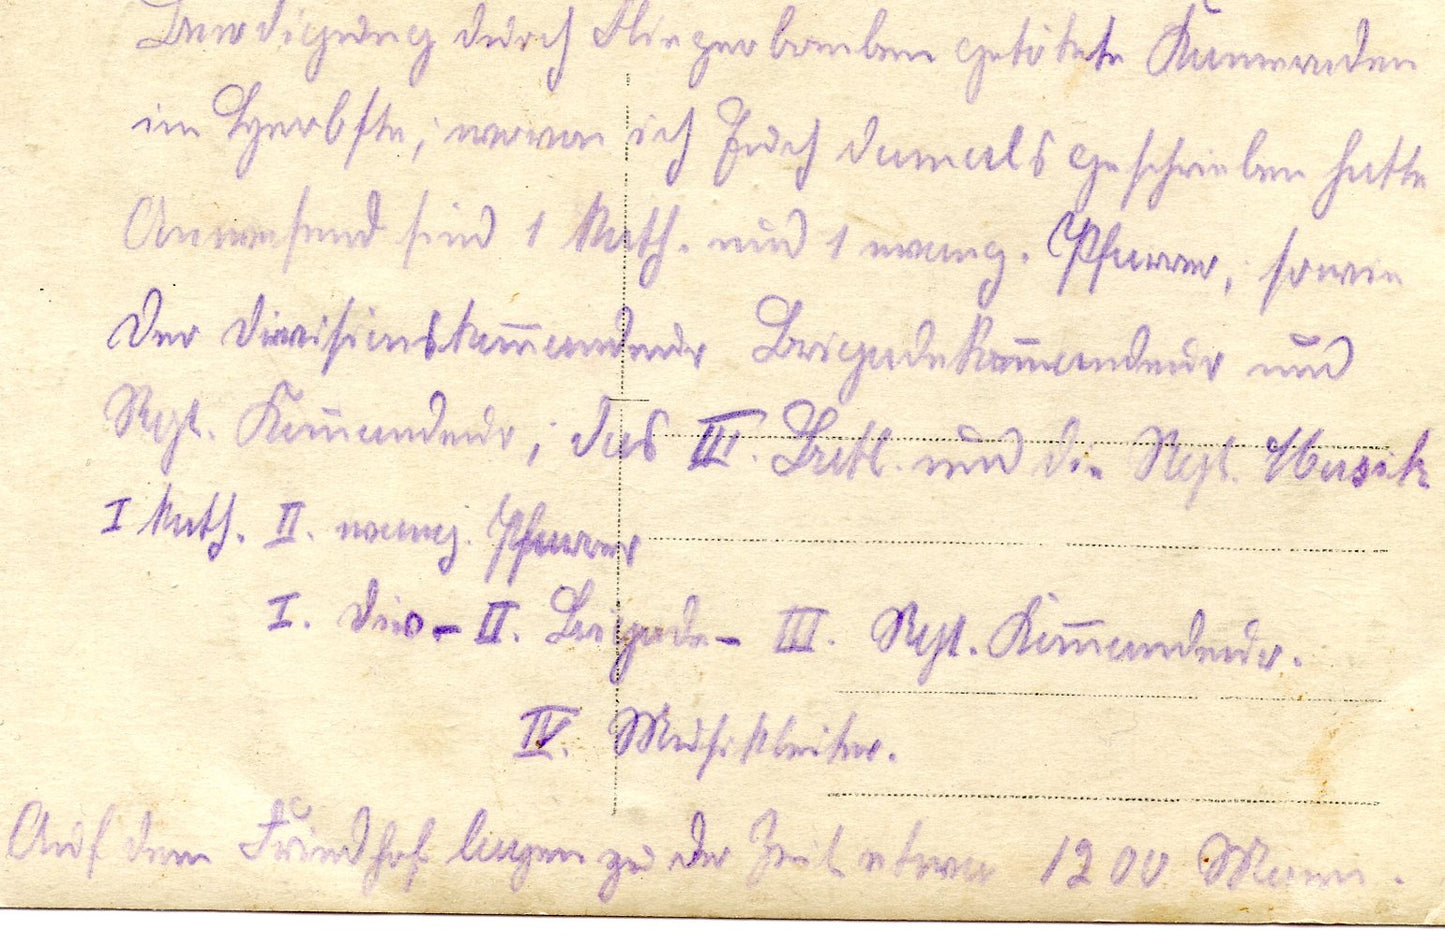 Beerdigung durch Fliegerbomben getötete Kameraden
im Herbste, wovon ich Euch damals geschrieben hatte
Anwesend sind 1 Kath. und 1 evang. Pfarrer, sowie
der Divisionskom̅andeur Brigadekom̅andeur und
Rgt. Kom̅andeur, das III. Batl. und die Rgt. Musik
I Kath. II. evang. Pfarrer
I. Div- II. Brigade- III. Rgt. Kom̅andeur.
IV. Musikleiter.
Auf dem Friedhof liegen zu der Zeit etwa 1200 Mann.